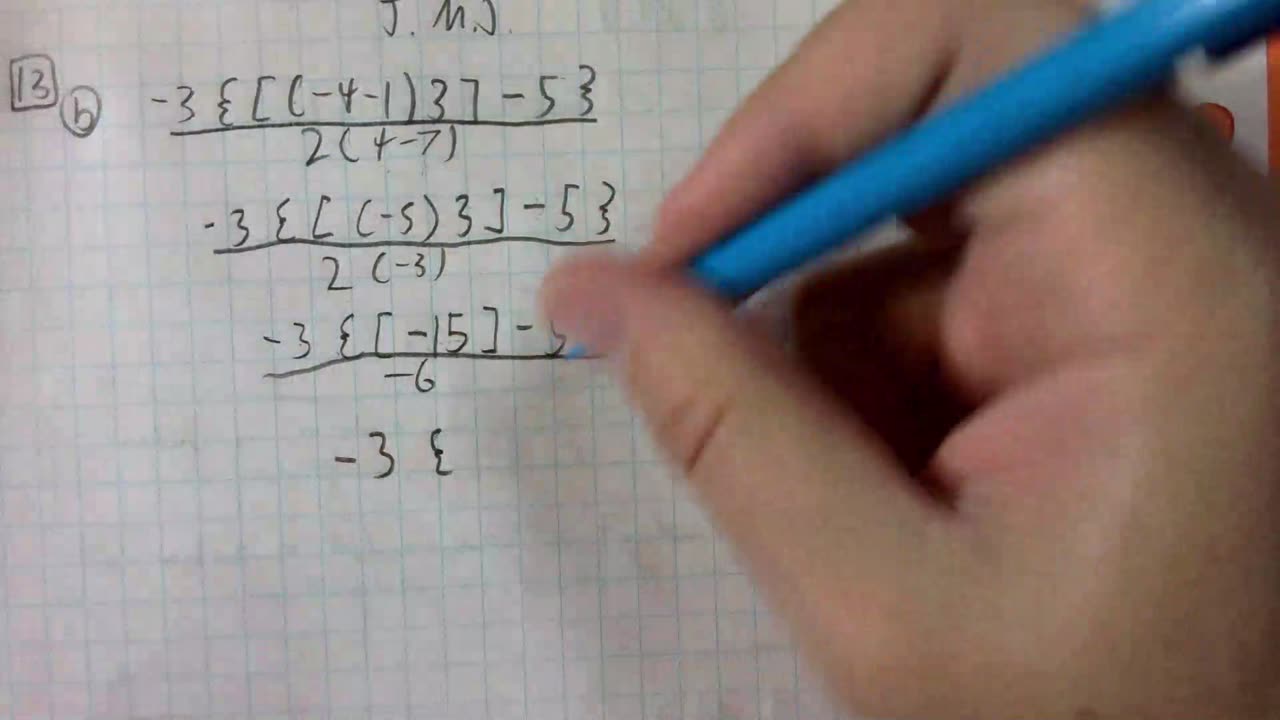 J.M.J.
13 b -3{[(-4-1)3]-5}
2(4-7)
-3{[(-5)3]-5}
2(-3)
-3{[-15]-5
-6
-3{